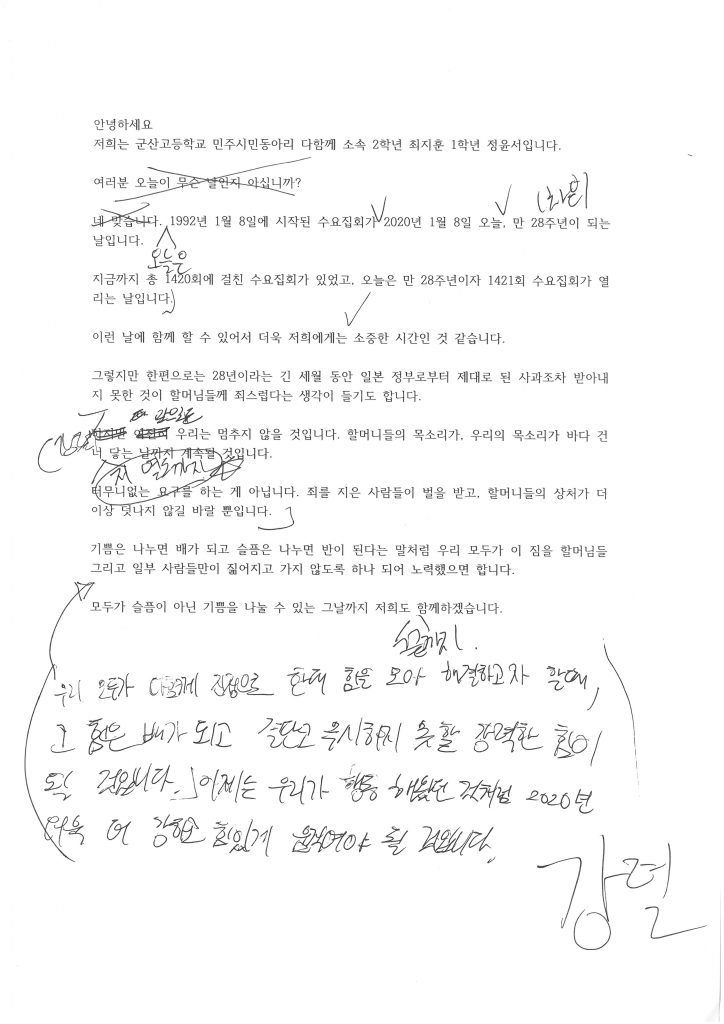 안녕하세요
저희는 군산고등학교 민주시민동아리 다함께 소속 2학년 최지훈 1학년 정윤서입니다.
여러분 오늘이 무슨 날인지 아십니까?
네 맞습니다. 1992년 1월 8일에 시작된 수요집회가 2020년 1월 8일 오늘, 만 28주년이 되는
날입니다.
오늘은
지금까지 총 1420회에 걸친 수요집회가 있었고, 오늘은 만 28주년이자 1421회 수요집회가 열
리는 날입니다.
이런 날에 함께 할 수 있어서 더욱 저희에게는 소중한 시간인 것 같습니다.
그렇지만 한편으로는 28년이라는 긴 세월 동안 일본 정부로부터 제대로 된 사과조차 받아내
지 못한 것이 할머님들께 죄스럽다는 생각이 들기도 합니다.
앞으로
우리는 멈추지 않을 것입니다. 할머니들의 목소리가, 우리의 목소리가 바다 건
너 닿는 날까지 계속될 것입니다.
저 열도까지
터무니없는 요구를 하는 게 아닙니다. 죄를 지은 사람들이 벌을 받고, 할머니들의 상처가 더
이상 덧나지 않길 바랄 뿐입니다.
기쁨은 나누면 배가 되고 슬픔은 나누면 반이 된다는 말처럼 우리 모두가 이 짐을 할머님들
그리고 일부 사람들만이 짊어지고 가지 않도록 하나 되어 노력했으면 합니다.
모두가 슬픔이 아닌 기쁨을 나눌 수 있는 그날까지 저희도 함께하겠습니다.
우리 모두가 다함께 진정으로 한데 힘을 모아 해결하고자 할 때,
그 힘은 배가 되고 결단코 무시하지 못할 강력한 힘이
될 것입니다. 이제는 우리가 행동 해왔던 것처럼 2020년
더욱 더 강하고 힘있게 움직여야 될 것입니다.
강열